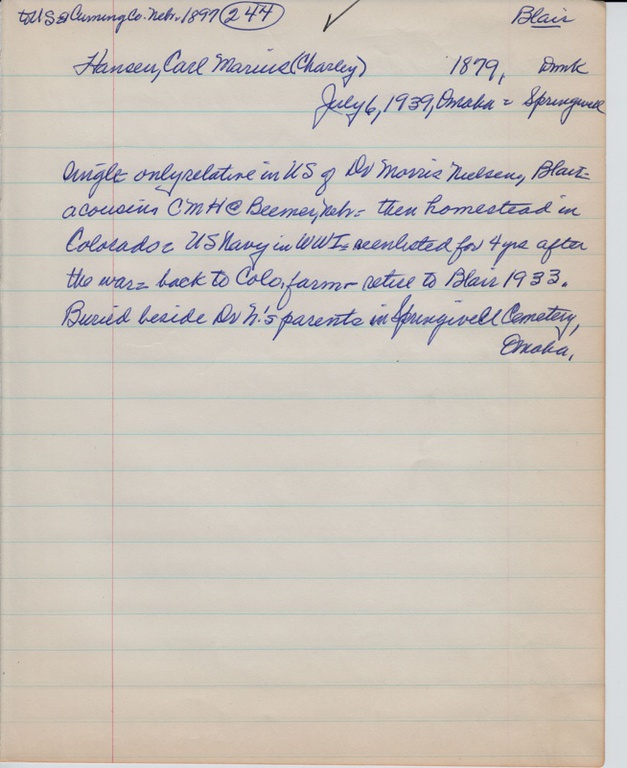 to US = Cuming Co. Nebr. 1897 (244) Blair
Hansen, Carl Marius (Charley) 1879, Dmk
July 6, 1939, Omaha = Springwell
single = only relative in US of Dr Morris Nielsen, Blair =
a cousin = CMH @ Beemer, Nebr = then homestead in
Colorado = US Navy in WWI = reenlisted for 4 yrs after
the war = back to Colo, farm - retire to Blair 1933.
Buried beside Dr N.'s parents in Springwell Cemetery,
Omaha.